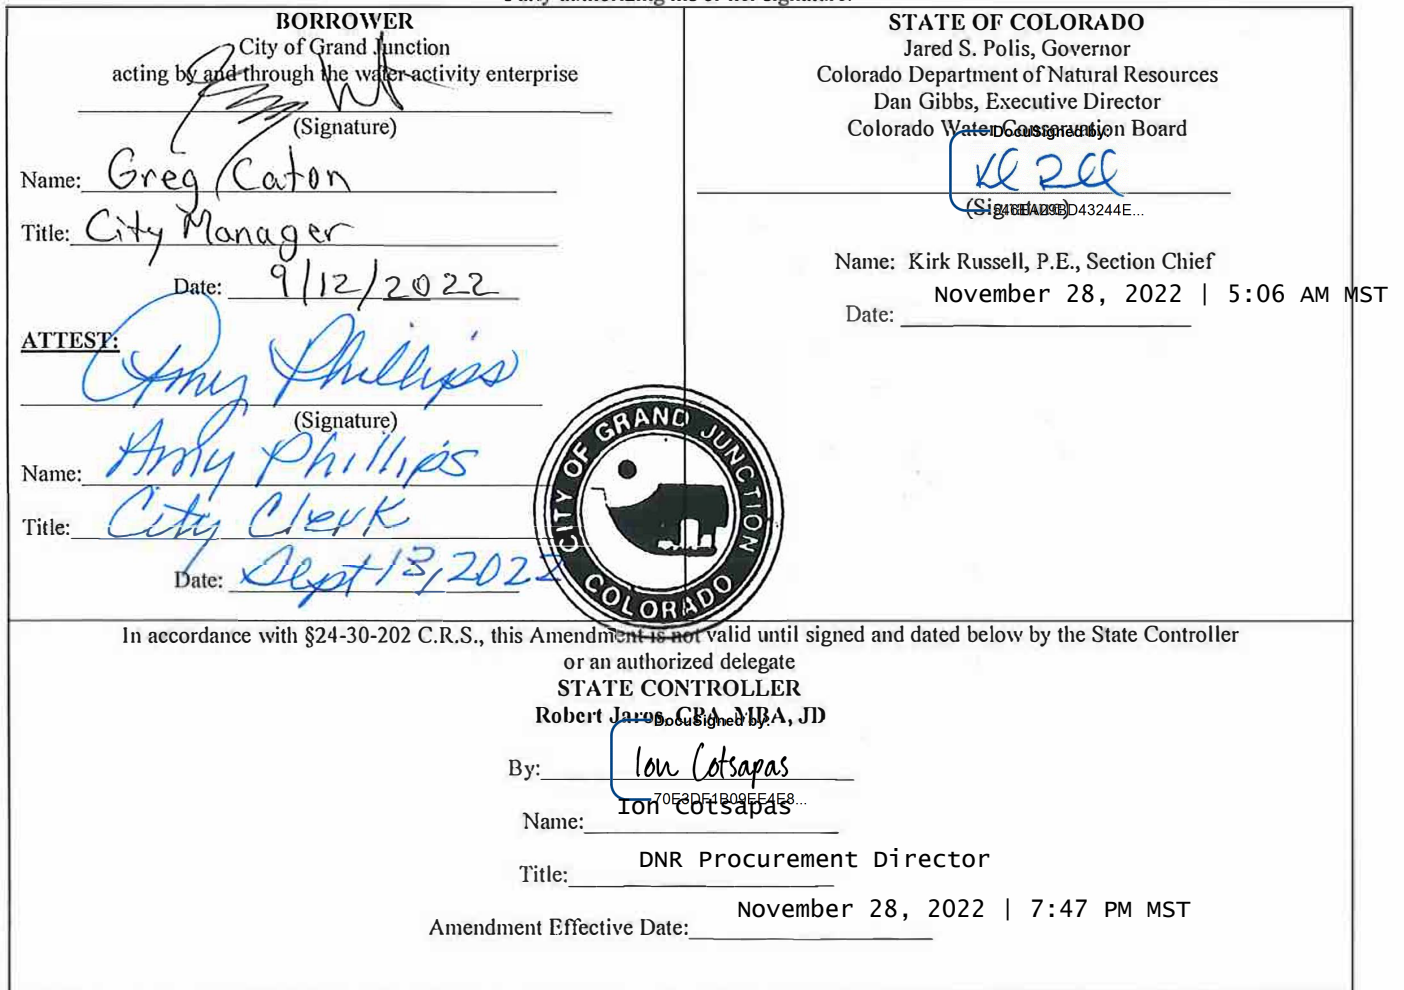 BORROWER
City of Grand Junction
acting by and through the water activity enterprise
(Signature)
Name: Greg Caton
Title: City Manager
Date: 9/12/2022
ATTEST:
Amy Phillips
(Signature)
Name: Amy Phillips
Title: City Clerk
Date: Sept 13, 2022
STATE OF COLORADO
Jared S. Polis, Governor
Colorado Department of Natural Resources
Dan Gibbs, Executive Director
Colorado Water Conservation Board
DocuSigned by:
(Signature)
Name: Kirk Russell, P.E., Section Chief
November 28, 2022 | 5:06 AM MST
Date:
CITY OF GRAND JUNCTION
COLORADO
In accordance with §24-30-202 C.R.S., this Amendment is not valid until signed and dated below by the State Controller
or an authorized delegate
STATE CONTROLLER
Robert Jaros, CPA, MBA, JD
DocuSigned by:
By: Ion Cotsapas
70E3DF1B09EE4E8...
Name: Ion Cotsapas
Title: DNR Procurement Director
Amendment Effective Date: November 28, 2022 | 7:47 PM MST